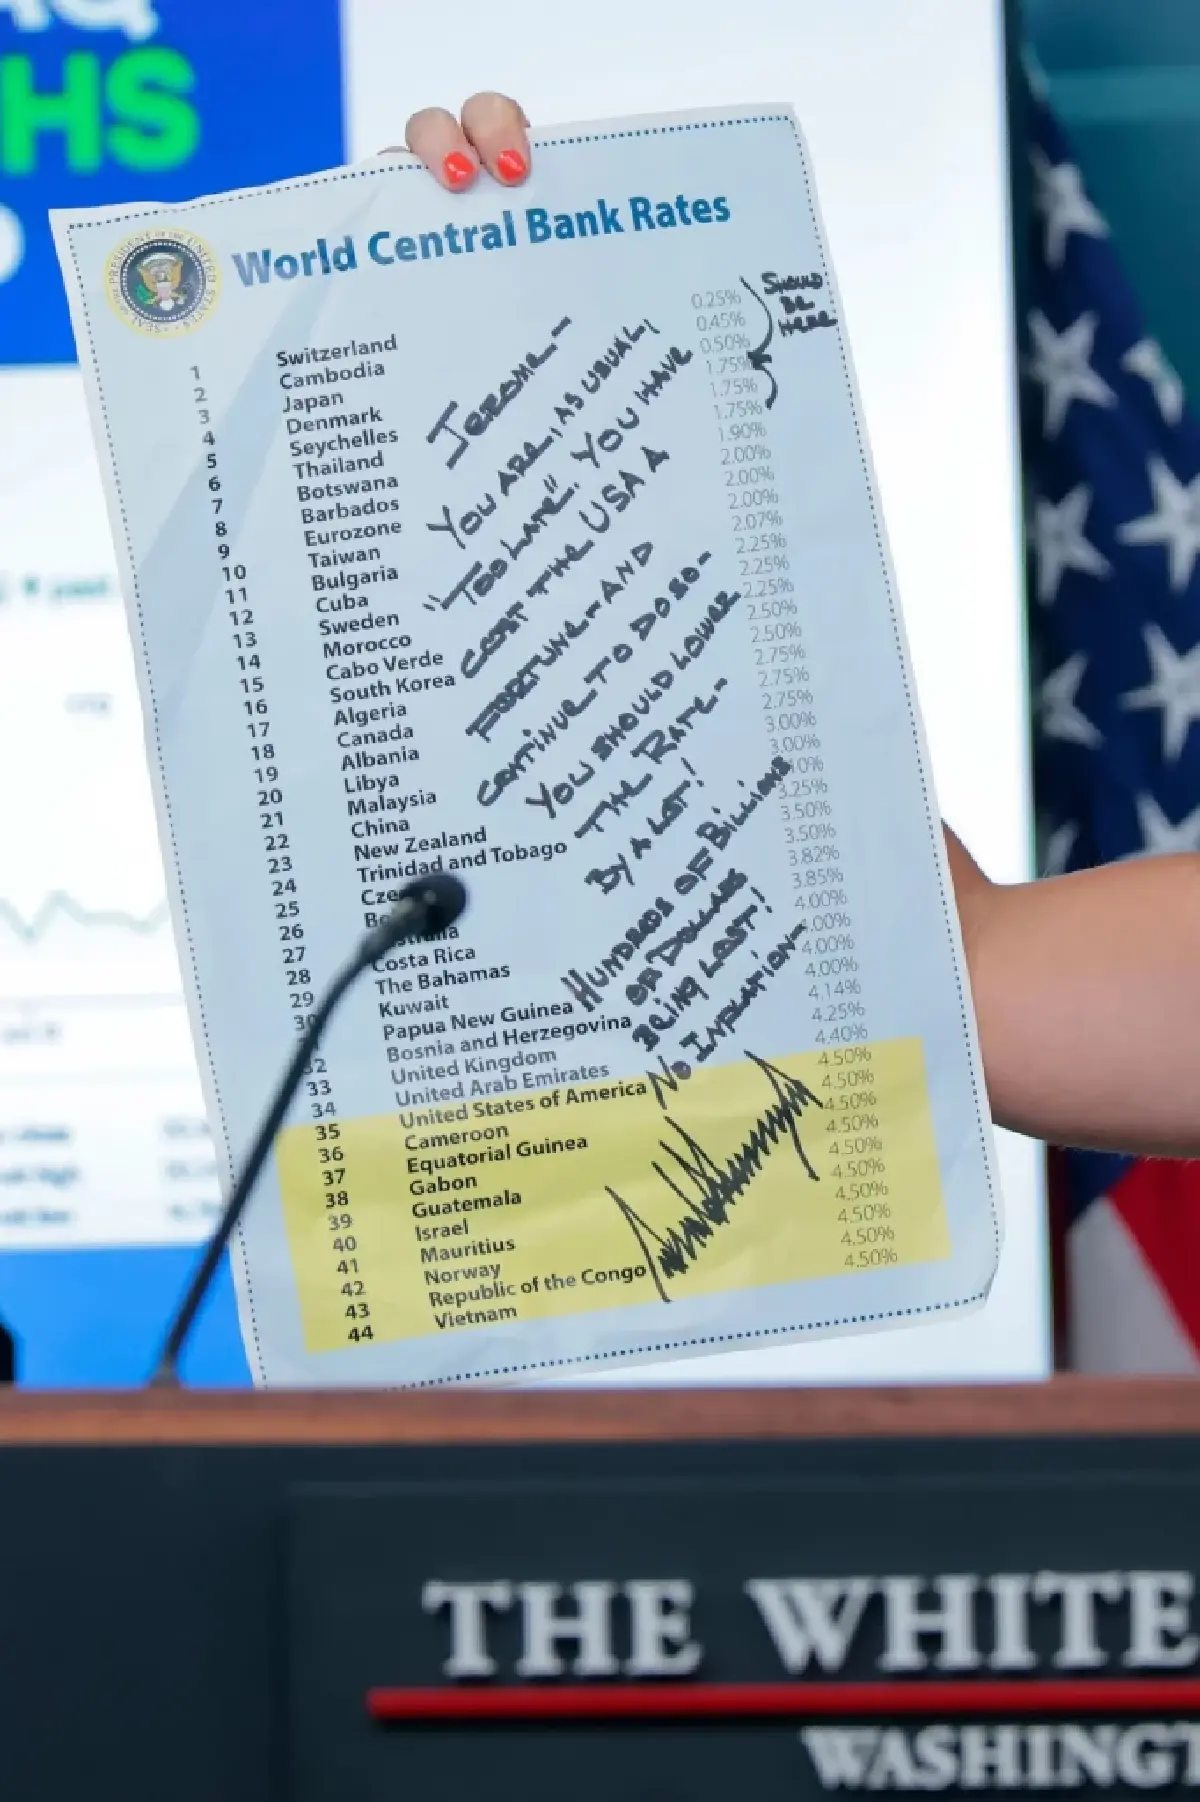 HS
World Central Bank Rates
SEAL OF THE PRESIDENT OF THE UNITED STATES
1 Switzerland 0.25%
2 Cambodia 0.45%
3 Japan 0.50%
4 Denmark 1.75%
5 Seychelles 1.75%
6 Thailand 1.75%
7 Botswana 1.90%
8 Barbados 2.00%
9 Eurozone 2.00%
10 Taiwan 2.00%
11 Bulgaria 2.07%
12 Cuba 2.25%
13 Sweden 2.25%
14 Morocco 2.25%
15 Cabo Verde 2.50%
16 South Korea 2.50%
17 Algeria 2.75%
18 Canada 2.75%
19 Albania 2.75%
20 Libya 3.00%
21 Malaysia 3.00%
22 China
23 New Zealand 3.25%
24 Trinidad and Tobago 3.50%
25 3.50%
26 3.82%
27 3.85%
28 Costa Rica 4.00%
29 The Bahamas 4.00%
30 Kuwait 4.00%
Papua New Guinea 4.00%
32 Bosnia and Herzegovina 4.14%
33 United Kingdom 4.25%
34 United Arab Emirates 4.40%
35 United States of America 4.50%
36 Cameroon 4.50%
37 Equatorial Guinea 4.50%
38 Gabon 4.50%
39 Guatemala 4.50%
40 Israel 4.50%
41 Mauritius 4.50%
42 Norway 4.50%
43 Republic of the Congo 4.50%
44 Vietnam 4.50%
SHOULD
BE
HERE
JEROME-
YOU ARE, AS USUAL,
"TOO LATE". YOU HAVE
COST THE USA A
FORTUNE - AND
CONTINUE TO DO SO -
YOU SHOULD LOWER
THE RATE -
BY A LOT!
HUNDREDS OF BILLIONS
OF DOLLARS
BEING LOST!
NO INFLATION -
THE WHITE
WASHINGT